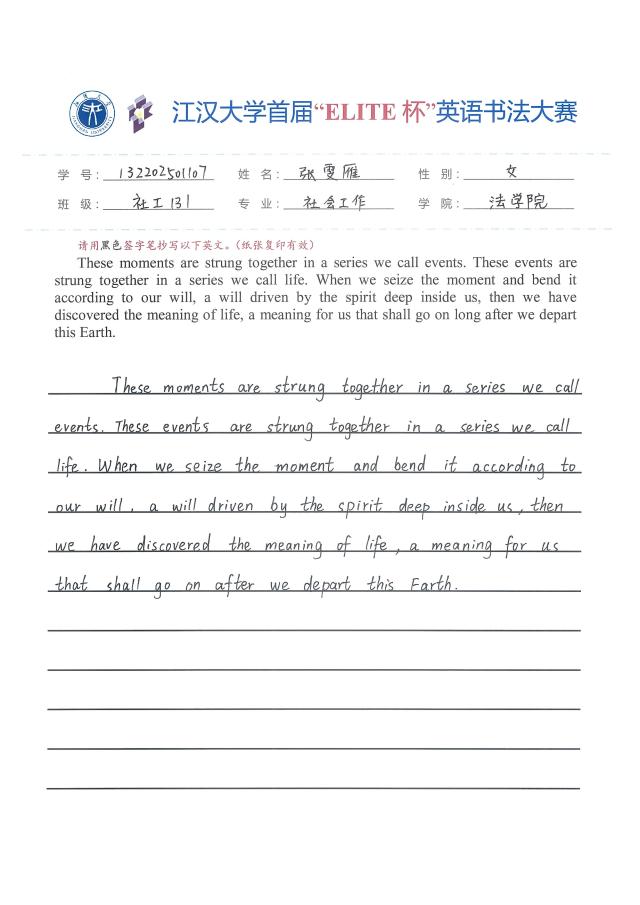 江汉大学首届“ELITE 杯”英语书法大赛
学 号：132202501107 姓 名：张雯雁 性 别：女
班 级：社工131 专 业：社会工作 学 院：法学院
请用黑色签字笔抄写以下英文。（纸张复印有效）
These moments are strung together in a series we call events. These events are
strung together in a series we call life. When we seize the moment and bend it
according to our will, a will driven by the spirit deep inside us, then we have
discovered the meaning of life, a meaning for us that shall go on long after we depart
this Earth.
These moments are strung together in a series we call
events. These events are strung together in a series we call
life. When we seize the moment and bend it according to
our will, a will driven by the spirit deep inside us, then
we have discovered the meaning of life, a meaning for us
that shall go on after we depart this Earth.